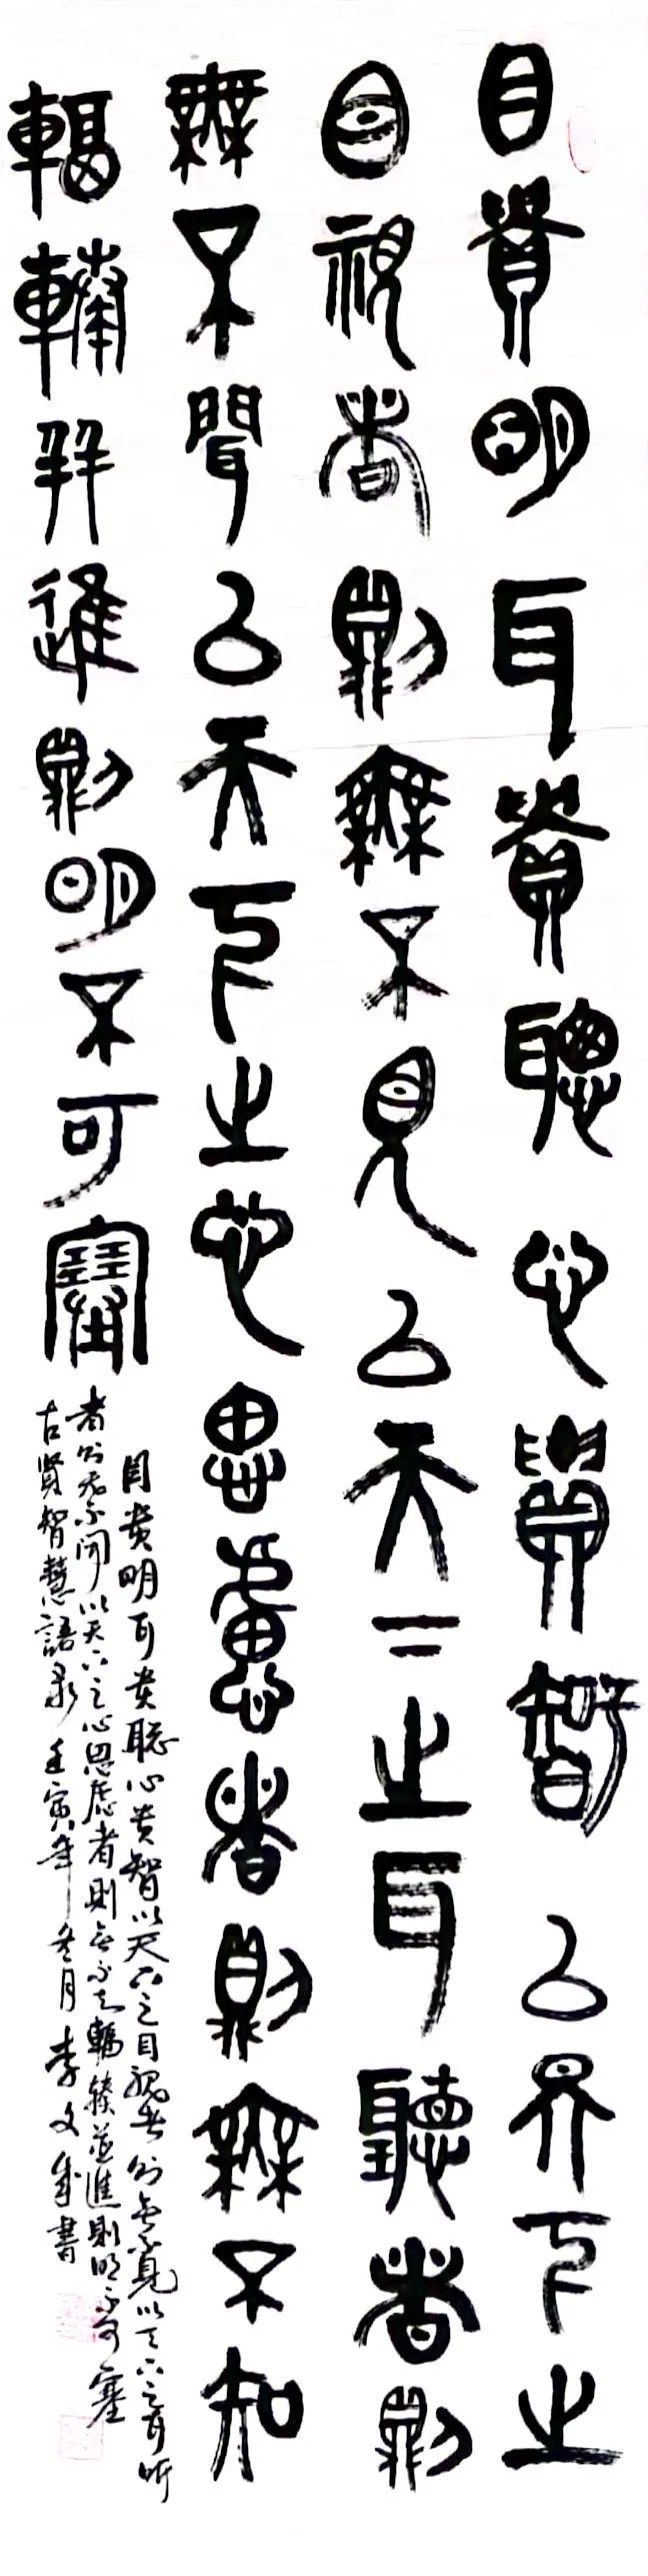 目貴明耳貴聰心貴智以天下之
目視者則無不見以天下之耳聽者則
無不聞以天下之心思慮者則無不知
輻輳并進則明不可塞
目贵明耳贵聪心贵智以天下之目視者則無不見以天下之耳听
者则无不闻以天下之心思慮者則無不知輻輳並進則明不可塞
古賢智慧語录壬寅年冬月李文成書